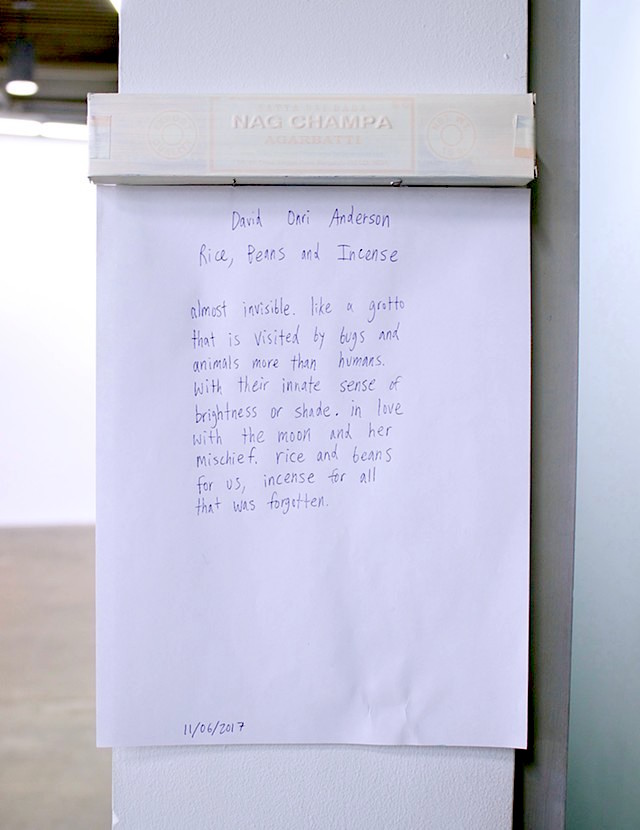 NAG CHAMPA
AGARBATTI
David Onri Anderson
Rice, Beans and Incense
almost invisible. like a grotto
that is visited by bugs and
animals more than humans.
With their innate sense of
brightness or shade. in love
with the moon and her
mischief. rice and beans
for us, incense for all
that was forgotten.
11/06/2017